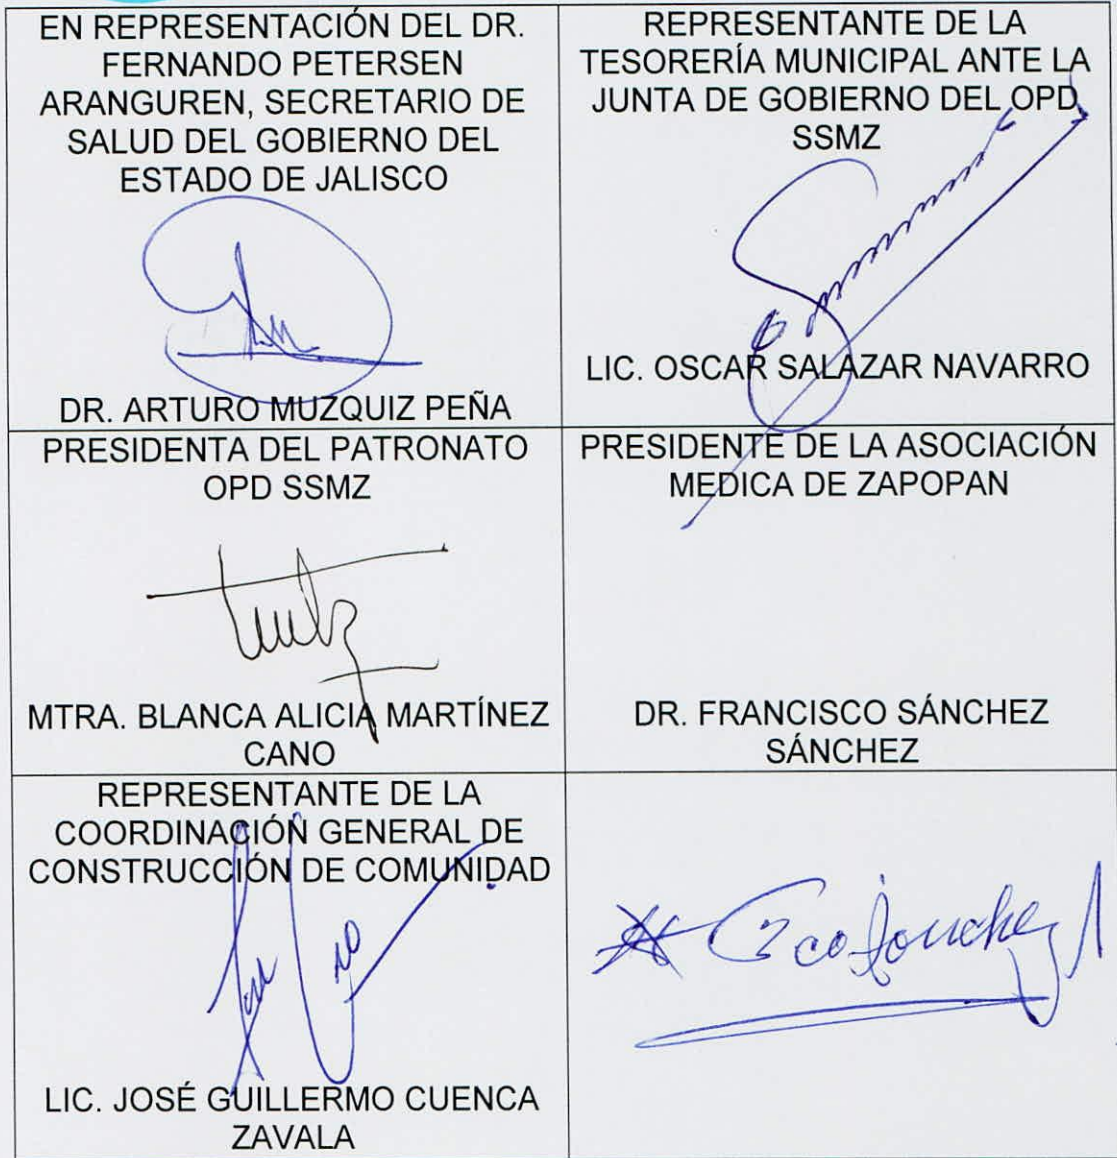 EN REPRESENTACIÓN DEL DR.
FERNANDO PETERSEN
ARANGUREN, SECRETARIO DE
SALUD DEL GOBIERNO DEL
ESTADO DE JALISCO
DR. ARTURO MUZQUIZ PEÑA
REPRESENTANTE DE LA
TESORERÍA MUNICIPAL ANTE LA
JUNTA DE GOBIERNO DEL OPD
SSMZ
LIC. OSCAR SALAZAR NAVARRO
PRESIDENTA DEL PATRONATO
OPD SSMZ
MTRA. BLANCA ALICIA MARTÍNEZ
CANO
PRESIDENTE DE LA ASOCIACIÓN
MEDICA DE ZAPOPAN
DR. FRANCISCO SÁNCHEZ
SÁNCHEZ
REPRESENTANTE DE LA
COORDINACIÓN GENERAL DE
CONSTRUCCIÓN DE COMUNIDAD
LIC. JOSÉ GUILLERMO CUENCA
ZAVALA